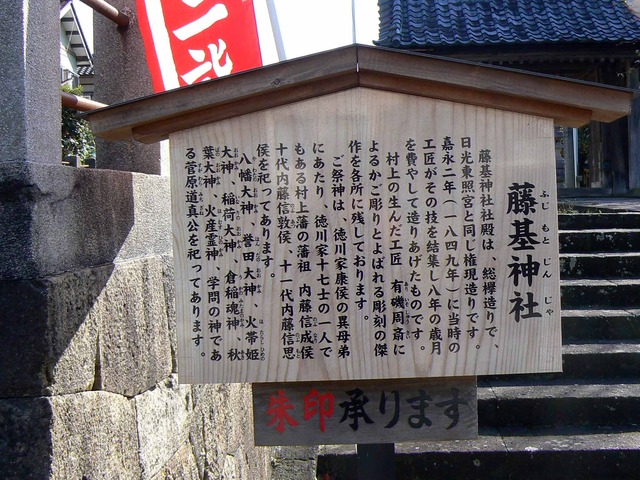 藤基神社
ふじもとじんじゃ
藤基神社社殿は、総欅造りで、
日光東照宮と同じ権現造りです。
嘉永二年(一八四九年)に当時の
工匠がその技を結集し八年の歳月
を費やして造りあげたものです。
村上の生んだ工匠 有磯周斎に
よるかご彫りとよばれる彫刻の傑
作を各所に残しております。
ご祭神は、徳川家康侯の異母弟
にあたり、徳川家十七士の一人で
もある村上藩の藩祖 内藤信成侯
十代内藤信敦侯、十一代内藤信思
侯を祀ってあります。
八幡大神、誉田大神、火帯姫
大神、稲荷大神、倉稲魂神、秋
葉大神、火産霊神、学問の神であ
る菅原道真公を祀ってあります。
朱印承ります